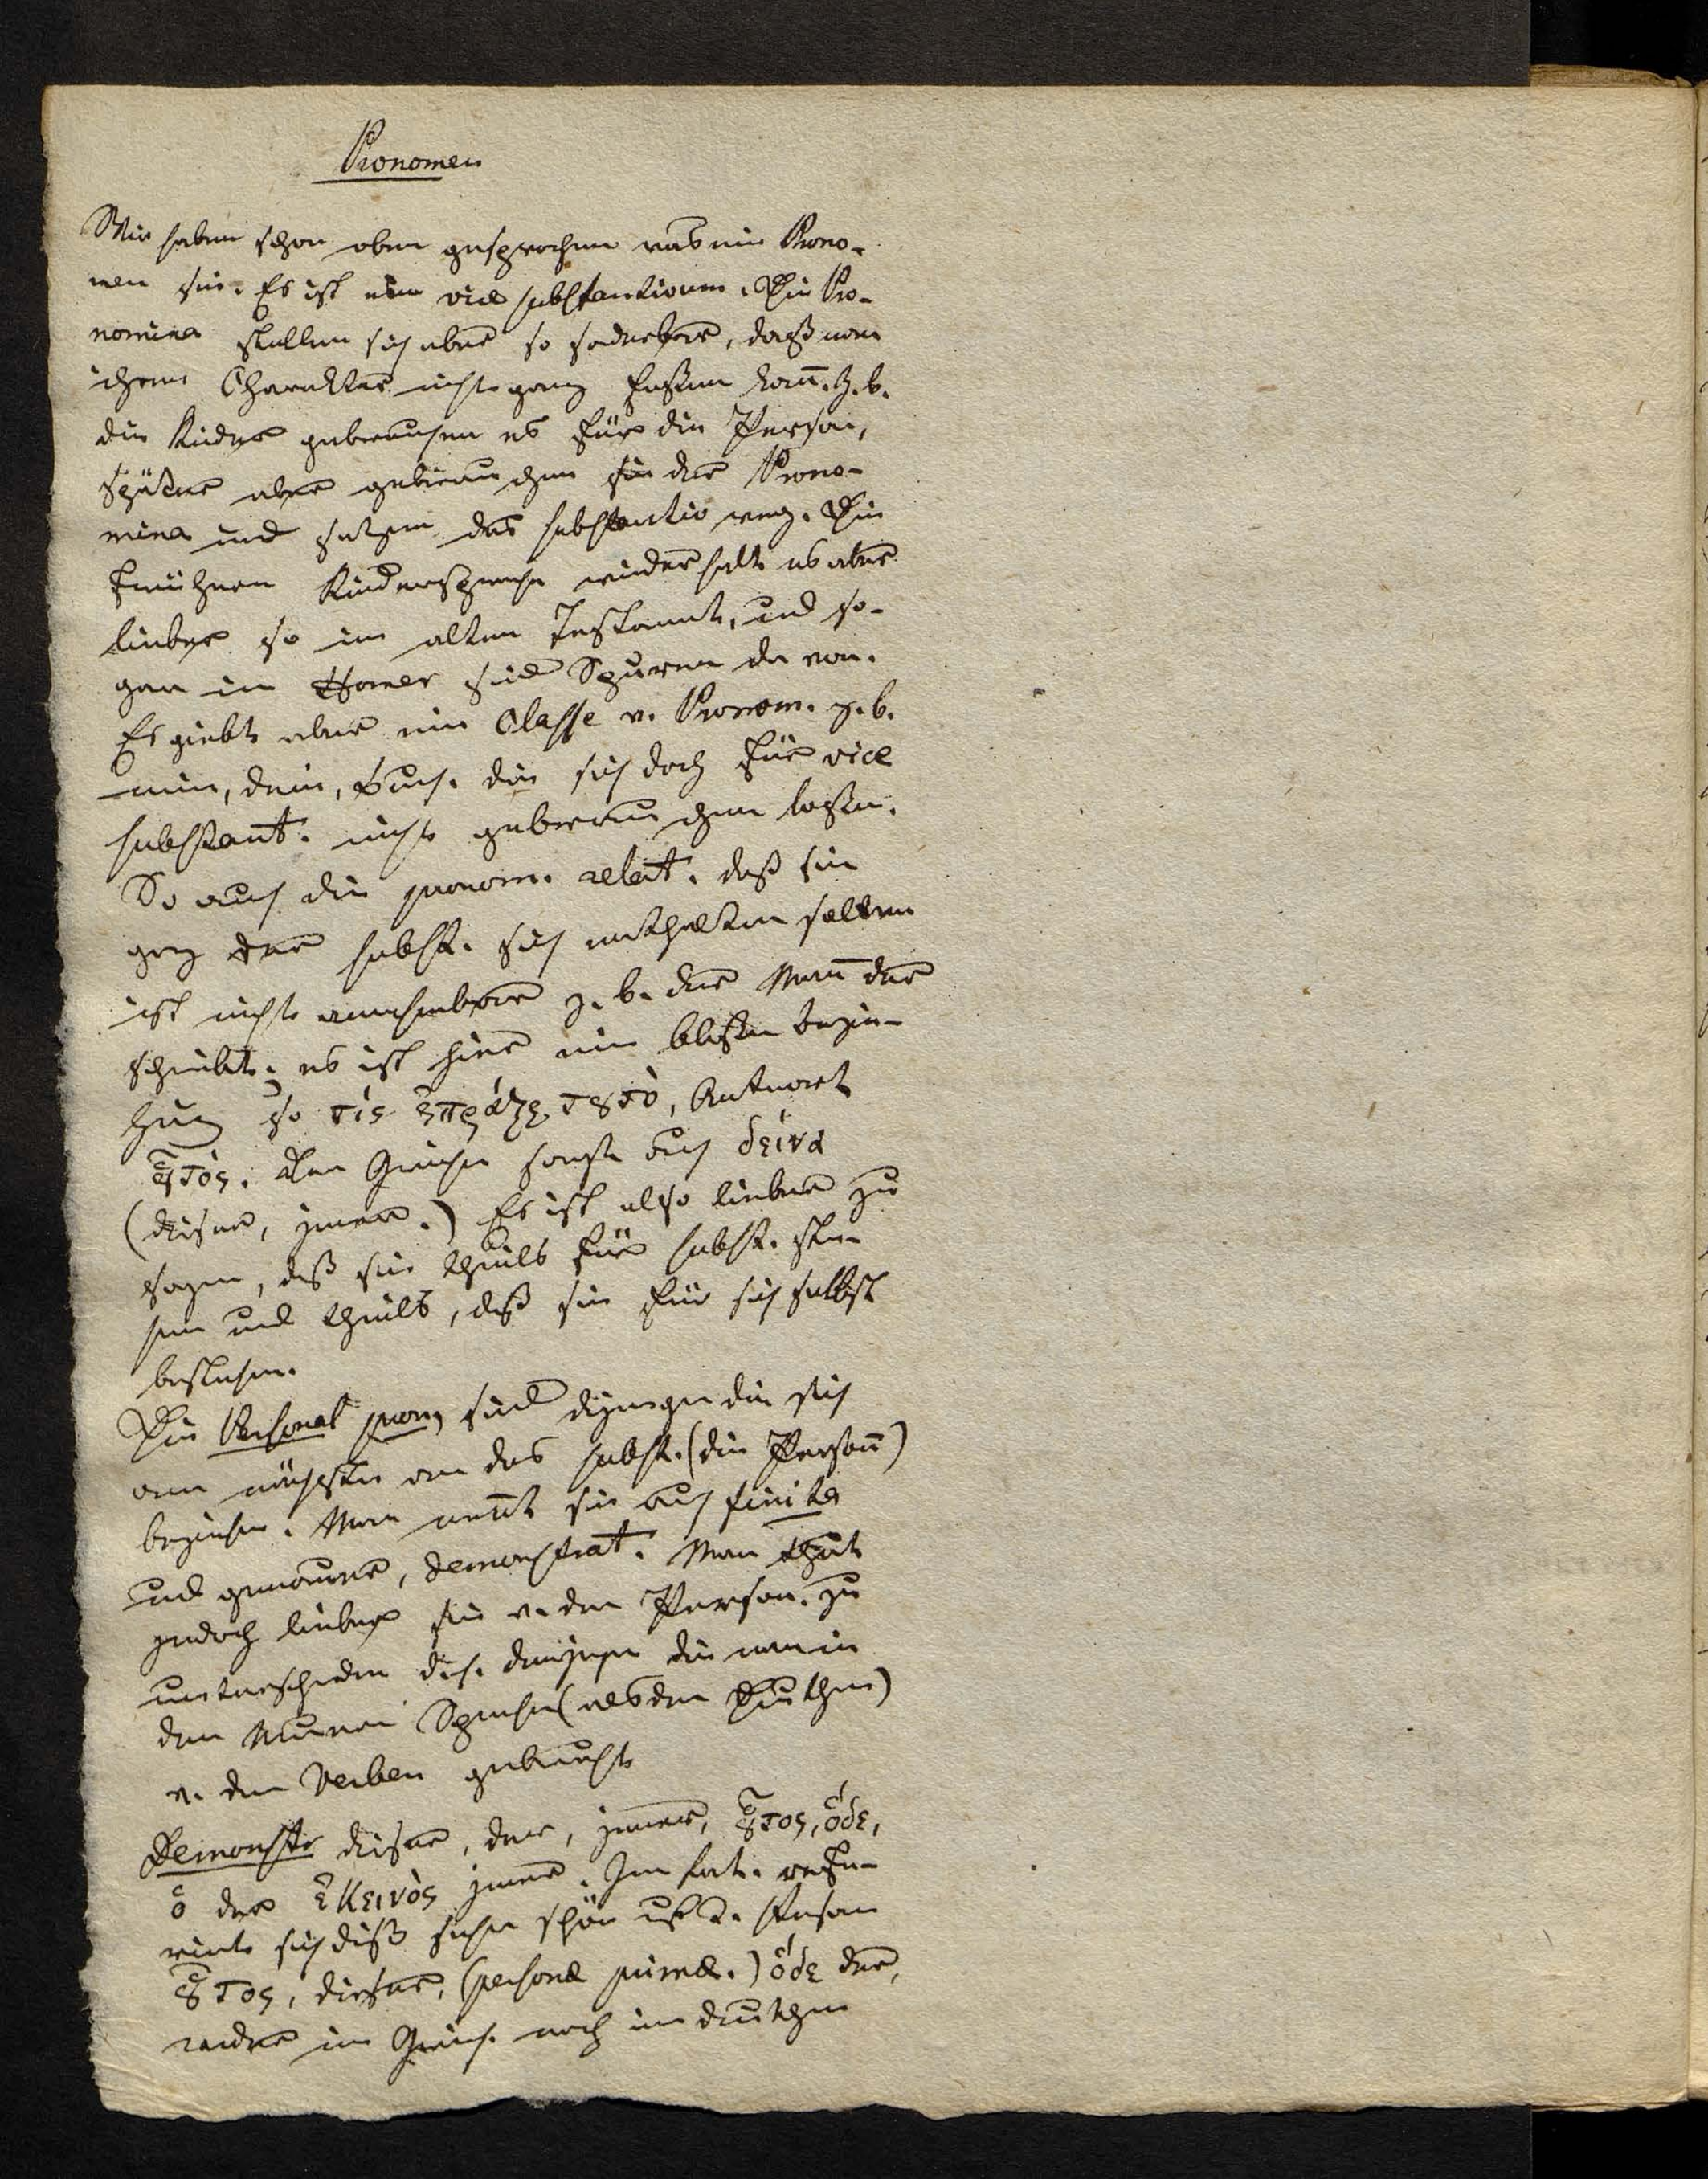 Pronomen
Wir haben schon oben gesprochen was ein Prono-
men sei. Es ist ein vice substantivum. Die Pro-
nomina stellen sich aber so sonderbar, daß man
ihren Charakter nicht ganz fassen kan̄. Z. b.
die Kinder gebrauchen es für die Person,
Spätere aber gebrauchen sie die Prono-
mina und setzen das substantiv weg. Die
frühere Kindersprache wiederholt es aber
lieber so im alten Testament, und so-
gar im Homer sind Spuren davon.
Es giebt aber eine Classe v. Pronom. z. b.
mein, dein, die sich doch für vice
substant. nicht gebrauchen lassen.
So auch die pronom. relat. daß sie
der subst. sich enthalten sollen
ist nicht z. b. der Man̄ der
schreibt. es ist hier eine bloße bezie-
hung so τίς ἔπραξε τȣτὸ, Antwort
ȣ̓τός. Der Grieche sonst auch δεῖνα
(dieser, jener.) Es ist also lieber zu
sagen, daß sie theils für subst. ste-
hen und theils, daß sie für sich selbst
bestehen.
Die Personal pron, sind diejenigen die sich
am nächsten an das subst. (die Person̄)
beziehen. Man nen̄t sie auch finita
und genauer, demonstrat. Man thut
jedoch lieber sie v. den Person. zu
unterscheiden d. h. denjenigen die man in
den Neuern Sprachen (als der Deutschen)
v. den Verben gebraucht
Demonstr dieser, der, jener, ȣ̓τος, ὅδε,
ὁ der ἐκεινὸς jener. Im Lat. refe-
rirt sich diß sehr schön auf d. Person
ȣ̓τος, dieser, (personæ primæ.) ὅδε der,
weder im Griech. noch im deutschen